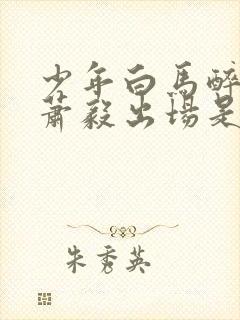 少年白馬醉
蕭毅出場是
朱秀英